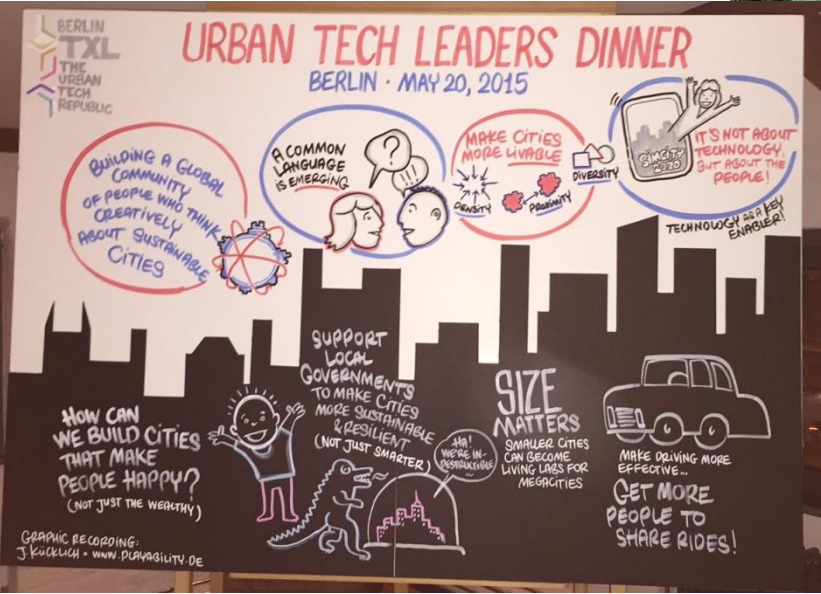 BERLIN
TXL
THE
URBAN
TECH
REPUBLIC
URBAN TECH LEADERS DINNER
BERLIN · MAY 20, 2015
BUILDING A GLOBAL
COMMUNITY
OF PEOPLE WHO THINK
CREATIVELY
ABOUT SUSTAINABLE
CITIES
A COMMON
LANGUAGE
IS EMERGING
?
!!!
MAKE CITIES
MORE LIVABLE
DENSITY
PROXIMITY
DIVERSITY
SIMCITY
2020
IT'S NOT ABOUT
TECHNOLOGY,
BUT ABOUT THE
PEOPLE!
TECHNOLOGY AS A KEY
ENABLER!
HOW CAN
WE BUILD CITIES
THAT MAKE
PEOPLE HAPPY?
(NOT JUST THE WEALTHY)
SUPPORT
LOCAL
GOVERNMENTS
TO MAKE CITIES
MORE SUSTAINABLE
& RESILIENT
(NOT JUST SMARTER)
HA!
WE'RE IN-
DESTRUCTIBLE
...
SIZE
MATTERS
SMALLER CITIES
CAN BECOME
LIVING LABS FOR
MEGACITIES
MAKE DRIVING MORE
EFFECTIVE...
GET MORE
PEOPLE TO
SHARE RIDES!
GRAPHIC RECORDING:
J. KÜCKLICH · WWW.PLAYABILITY.DE